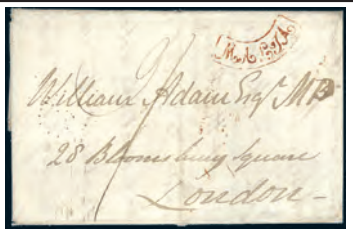 William Adam Esqr. MP
28 Bloomsbury Square
London